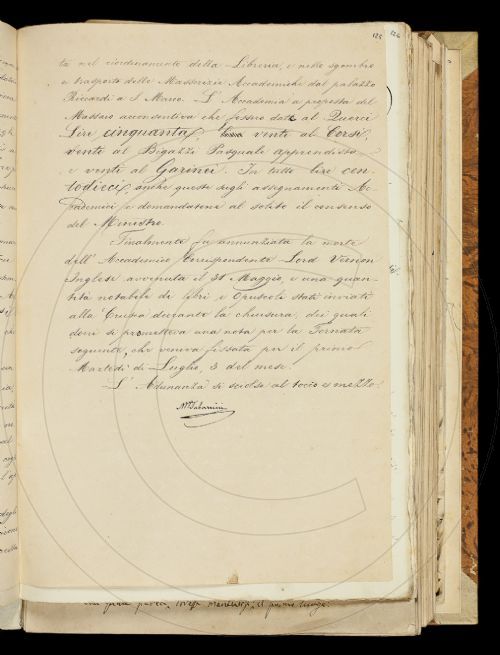 125 126
ta nel riordinamento della Libreria, e nello sgombro
e trasporto delle Masserizie Accademiche dal palazzo
Riccardi a S. Marco. L'Accademia a proposta del
Massaio acconsentiva che fossero date al Querci
Lire cinquanta, venti al Corsi,
venti al Bigazzi Pasquale apprendista
e venti al Garinei. In tutto lire cen-
todieci, anche queste sugli assegnamenti Ac-
cademici e domandatone al solito il consenso
del Ministro.
Finalmente fu annunziata la morte
dell'Accademico Corrispondente Lord Vernon
Inglese avvenuta il 31 Maggio, e una quan-
tità notabile di libri e Opuscoli stati inviati
alla Crusca durante la chiusura, dei quali
doni si prometteva una nota per la Tornata
seguente, che veniva fissata per il primo
Martedì di Luglio, 3 del mese.
L'Adunanza si sciolse al tocco e mezzo.
M. Tabarrini